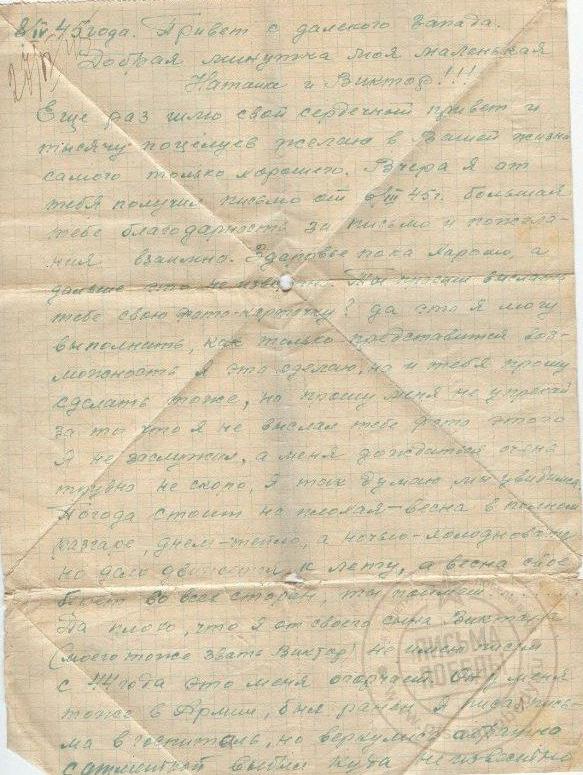 8/IV 45 года. Привет с далекого Запада.
27/IV
Добрая минутка моя маленькая
Наташа и Виктор!!!
Еще раз шлю свой сердечный привет и
тысячу поцелуев желаю в Вашей жизни
самого только хорошего. Вчера я от
тебя получил письмо от /III 45 г. большая
тебе благодарность за письмо и пожела-
ния взаимно. Здоровье пока хорошо, а
дальше это не известно. Ты просиш выслать
тебе свою фото-карточку? да это я могу
выполнить, как только представится воз-
можность я это сделаю, но и тебя прошу
сделать тоже, но прошу меня не упрекай
за то что я не выслал тебе фото этого
Я не заслужил, а меня дождаться очень
трудно не скоро, я так думаю мы увидимся.
Погода стоит не плохая-весна в полном
разгаре, днем-тепло, а ночью-холодновато
но дело движется к лету, а весна свое
берет со всех сторон, ты поймеш.
Да плохо, что я от своего сына Виктора
(моего тоже звать Виктор) не имею писем
с 44 года это меня огорчает. Он у меня
тоже в Армии, был ранен Я писал пись-
ма в госпиталь, но вернулись обратно
с отметкой выбыл куда неизвестно
ПИСЬМА
ПОБЕДЫ